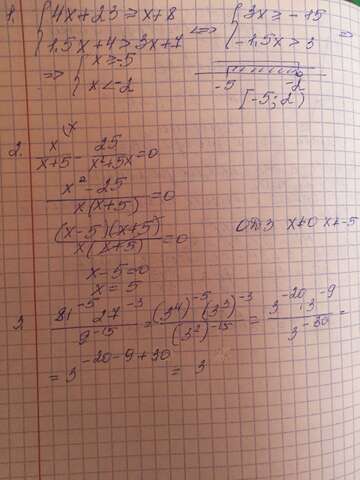 1. { 4x + 23 ≥ x + 8 ⇔ { 3x ≥ -15 ⇒
{ 1,5x + 4 > 3x + 7 { -1,5x > 3
⇒ { x ≥ -5
{ x < -2 -5 -2
[-5; 2)
2. x/(x+5) - 25/(x²+5x) = 0
(x² - 25)/(x(x+5)) = 0
((x-5)(x+5))/(x(x+5)) = 0 ОДЗ x≠0 x≠-5
x - 5 = 0
x = 5
3. (81⁻⁵ 27⁻³)/9⁻¹⁵ = ((3⁴)⁻⁵ · (3³)⁻³)/(3²)⁻¹⁵ = (3⁻²⁰ · 3⁻⁹)/3⁻³⁰ =
= 3⁻²⁰⁻⁹⁺³⁰ = 3